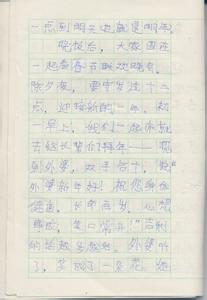 一点到明天也就是明年。
晚饭后，大家围在
一起看春节联欢晚会。
除夕夜，要守岁过十二
点，迎接新的一年。初
一早上，我们一起床就
去给长辈们拜年——
到外婆，双手合十，说“
外婆新年好！祝您身体
健康，长命百岁，心想
事成，笑口常开！”吉利
的话越多越好。外婆听
了，笑成了一朵花，给